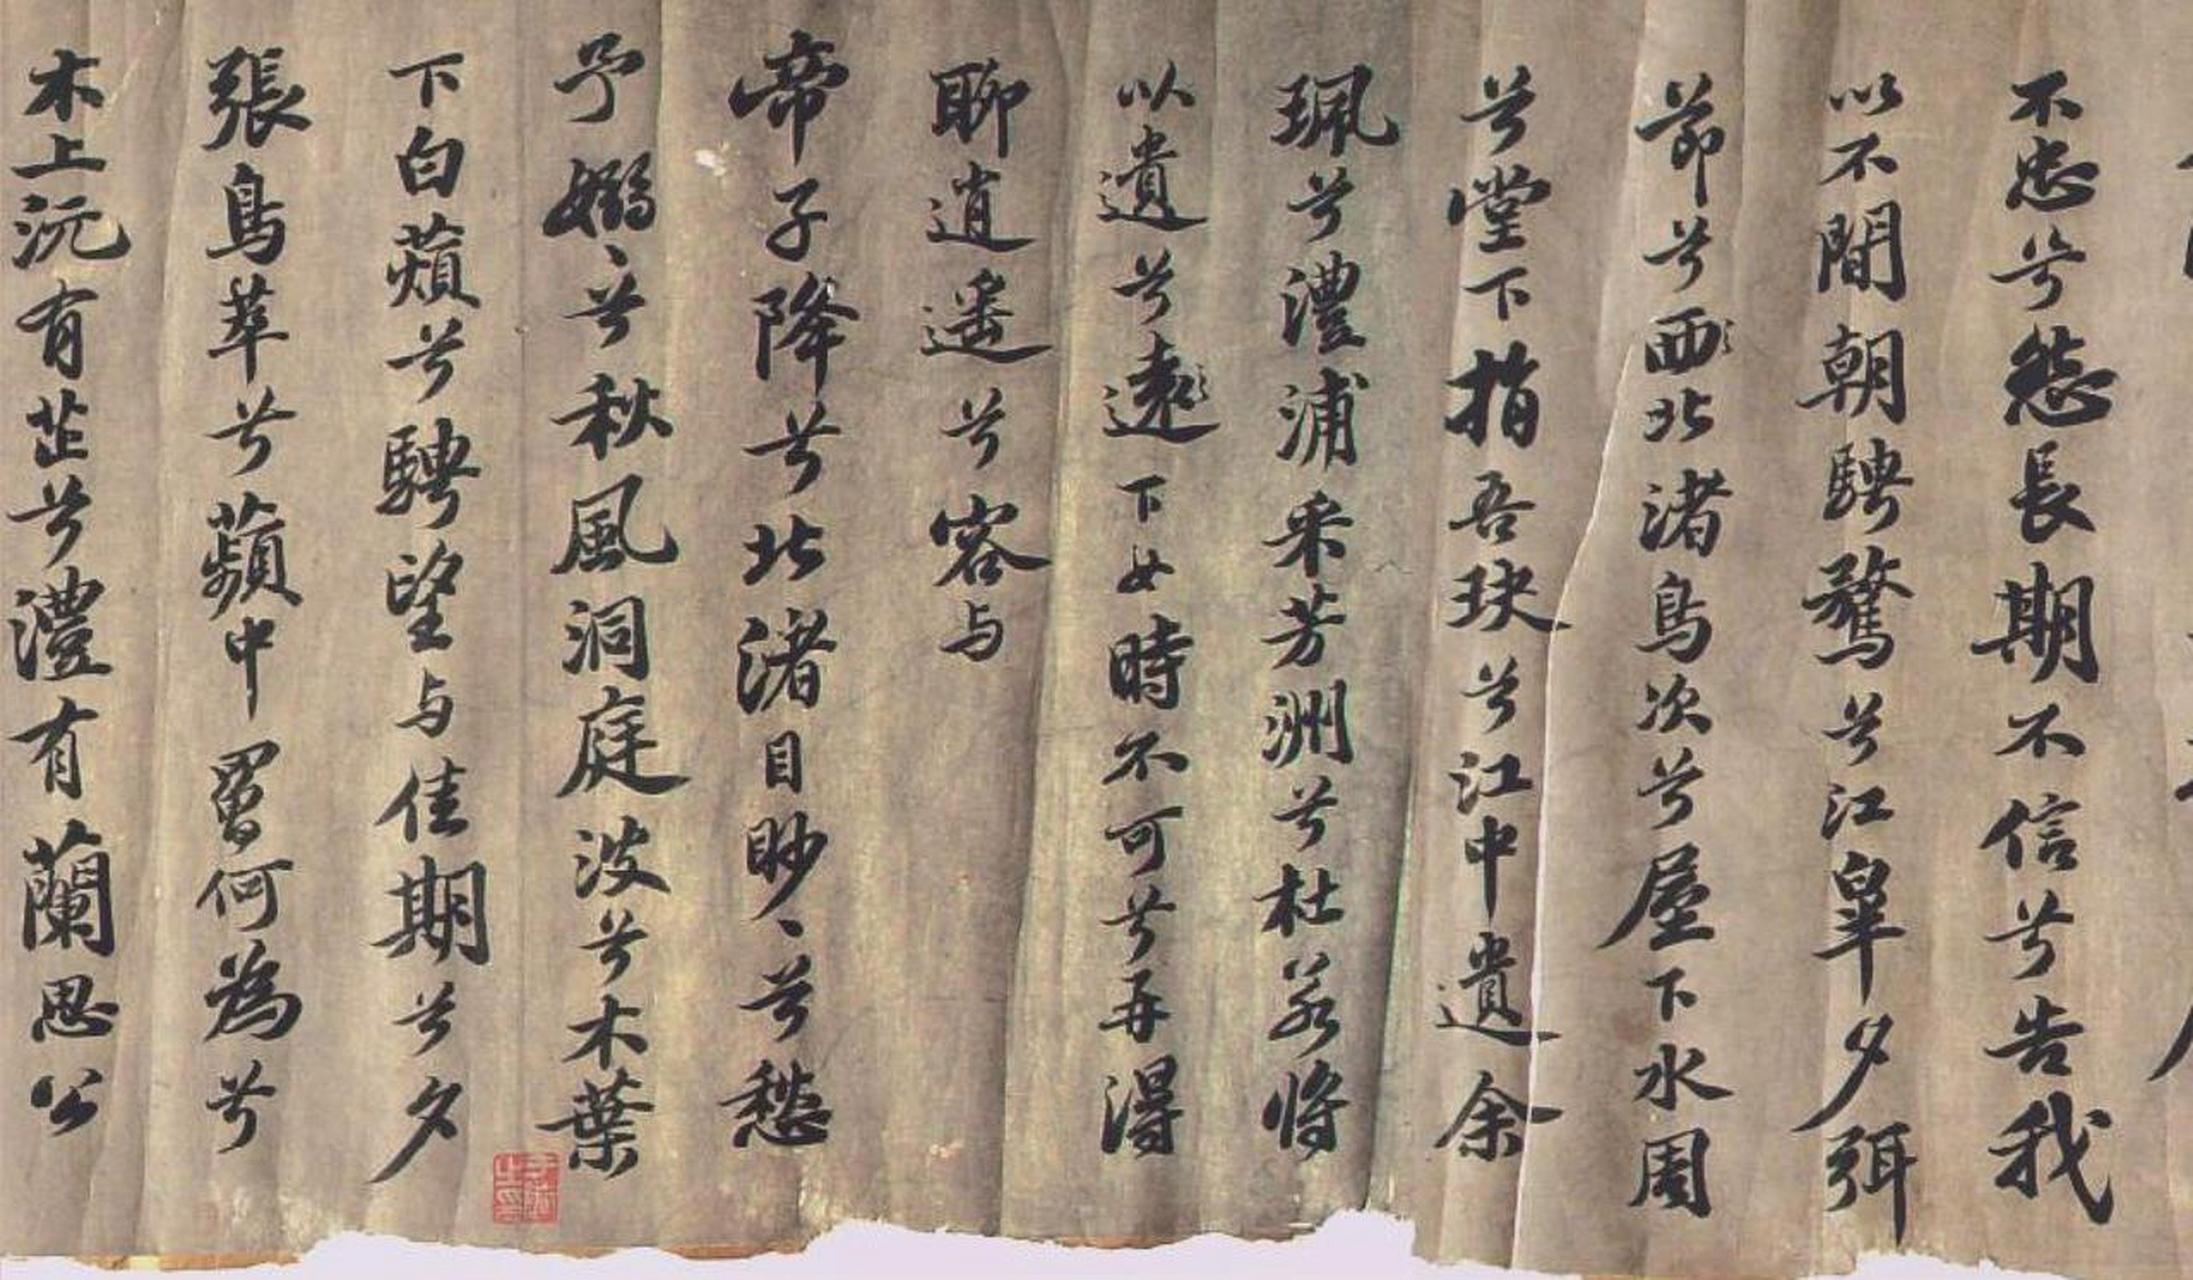 不忠兮怨長期不信兮告我
以不閒朝騁騖兮江皋夕弭
節兮西北渚鳥次兮屋下水周
兮堂下指吾玦兮江中遺余
珮兮澧浦采芳洲兮杜若將
以遺兮遠下女時不可兮再得
聊逍遙兮容与
帝子降兮北渚目眇〻兮愁
予嫋〻兮秋風洞庭波兮木葉
下白薠兮騁望与佳期兮夕
張鳥萃兮蘋中罾何為兮
木上沅有芷兮澧有蘭思公